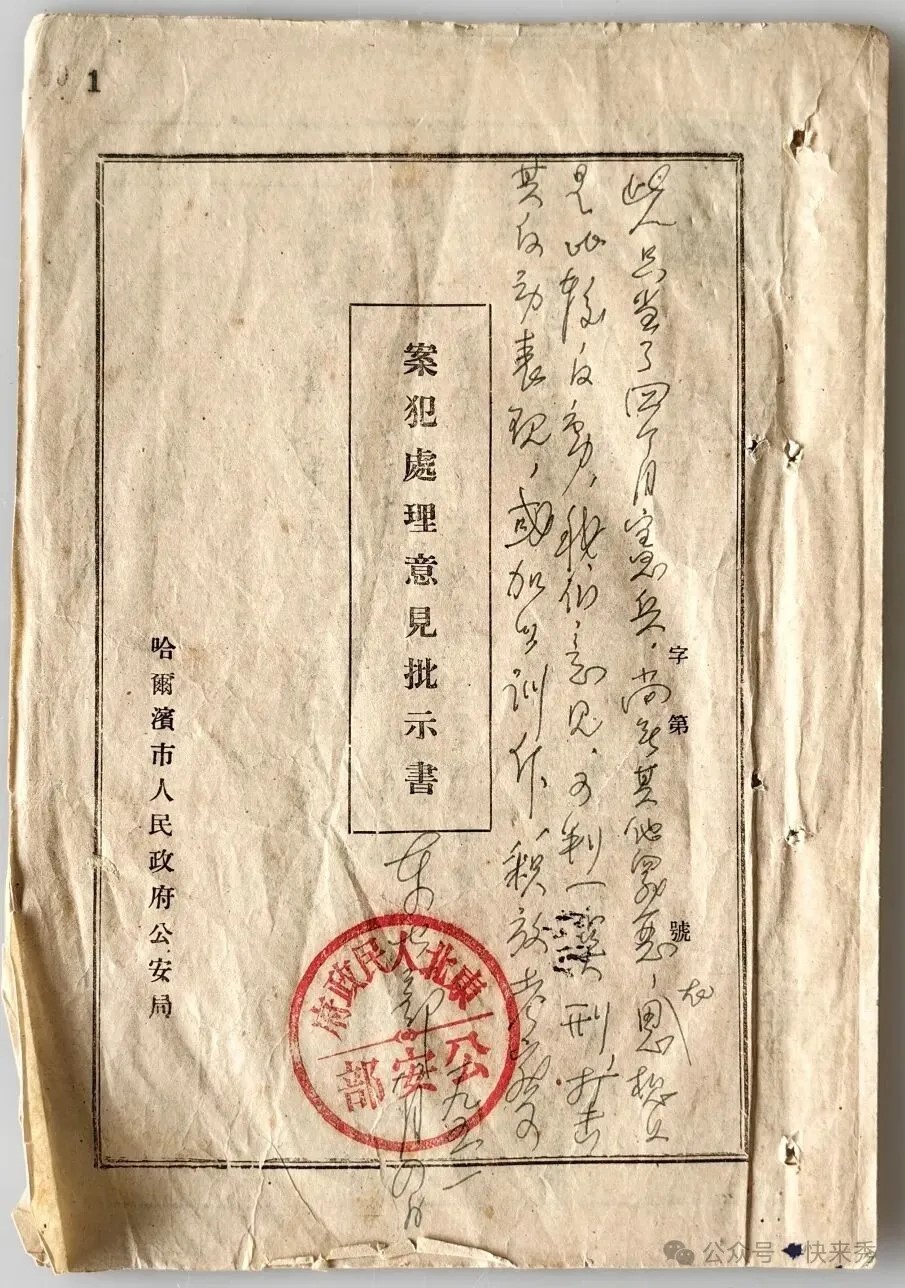 1
字第 號
此人只当了四个月宪兵，尚无其他罪恶，思想上
是比较反动，我们意见，可判一 刑，打击
其反动表现，或加以训 ，释放
案犯處理意見批示書
东 公安部
一九五一 月 日
東北人民政府
公安部
哈爾濱市人民政府公安局
公众号 快来秀